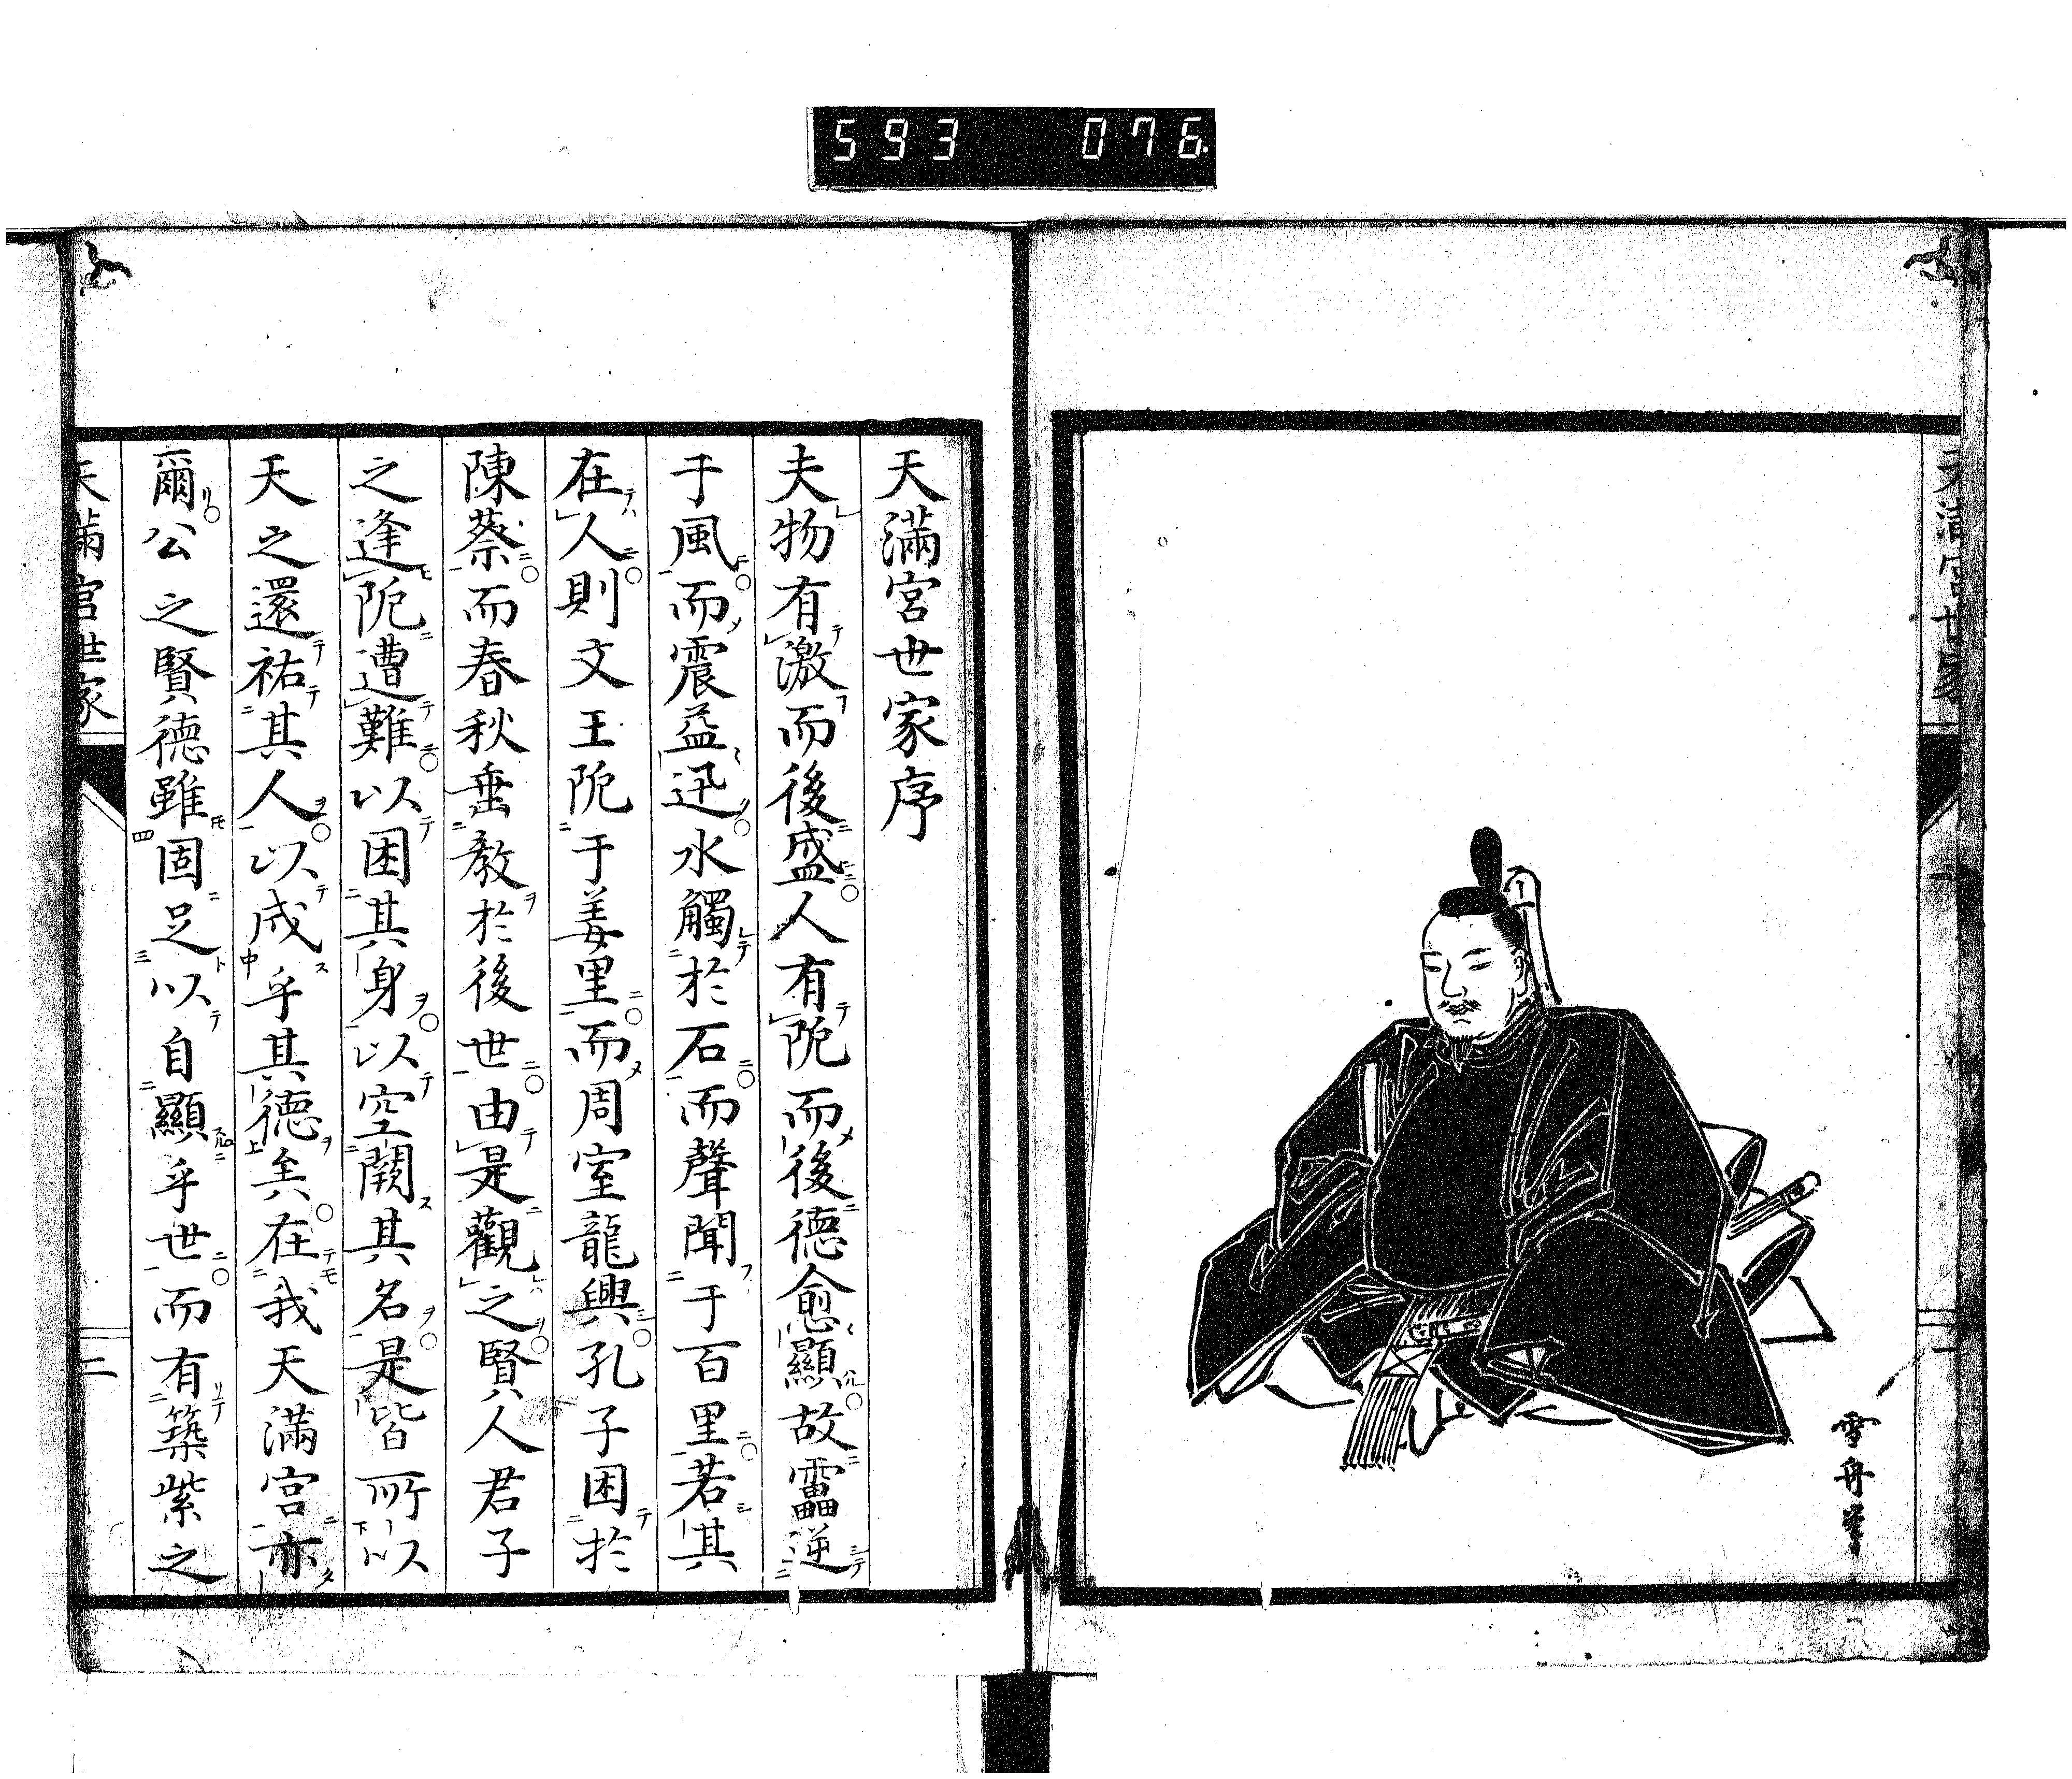 593 076.
天滿宮世家
一
雪舟筆
天滿宮世家序
夫物有激而後盛人有阨而後德愈顯故靁逆
于風而震益迅水觸於石而聲聞于百里若其
在人則文王阨于姜里而周室龍興孔子困於
陳蔡而春秋垂教於後世由是觀之賢人君子
之逢阨遭難以困其身以空闕其名是皆所以
天之還祐其人以成乎其德矣在我天滿宮亦
爾公之賢德雖固足以自顯乎世而有築紫之
天滿宮世家
二